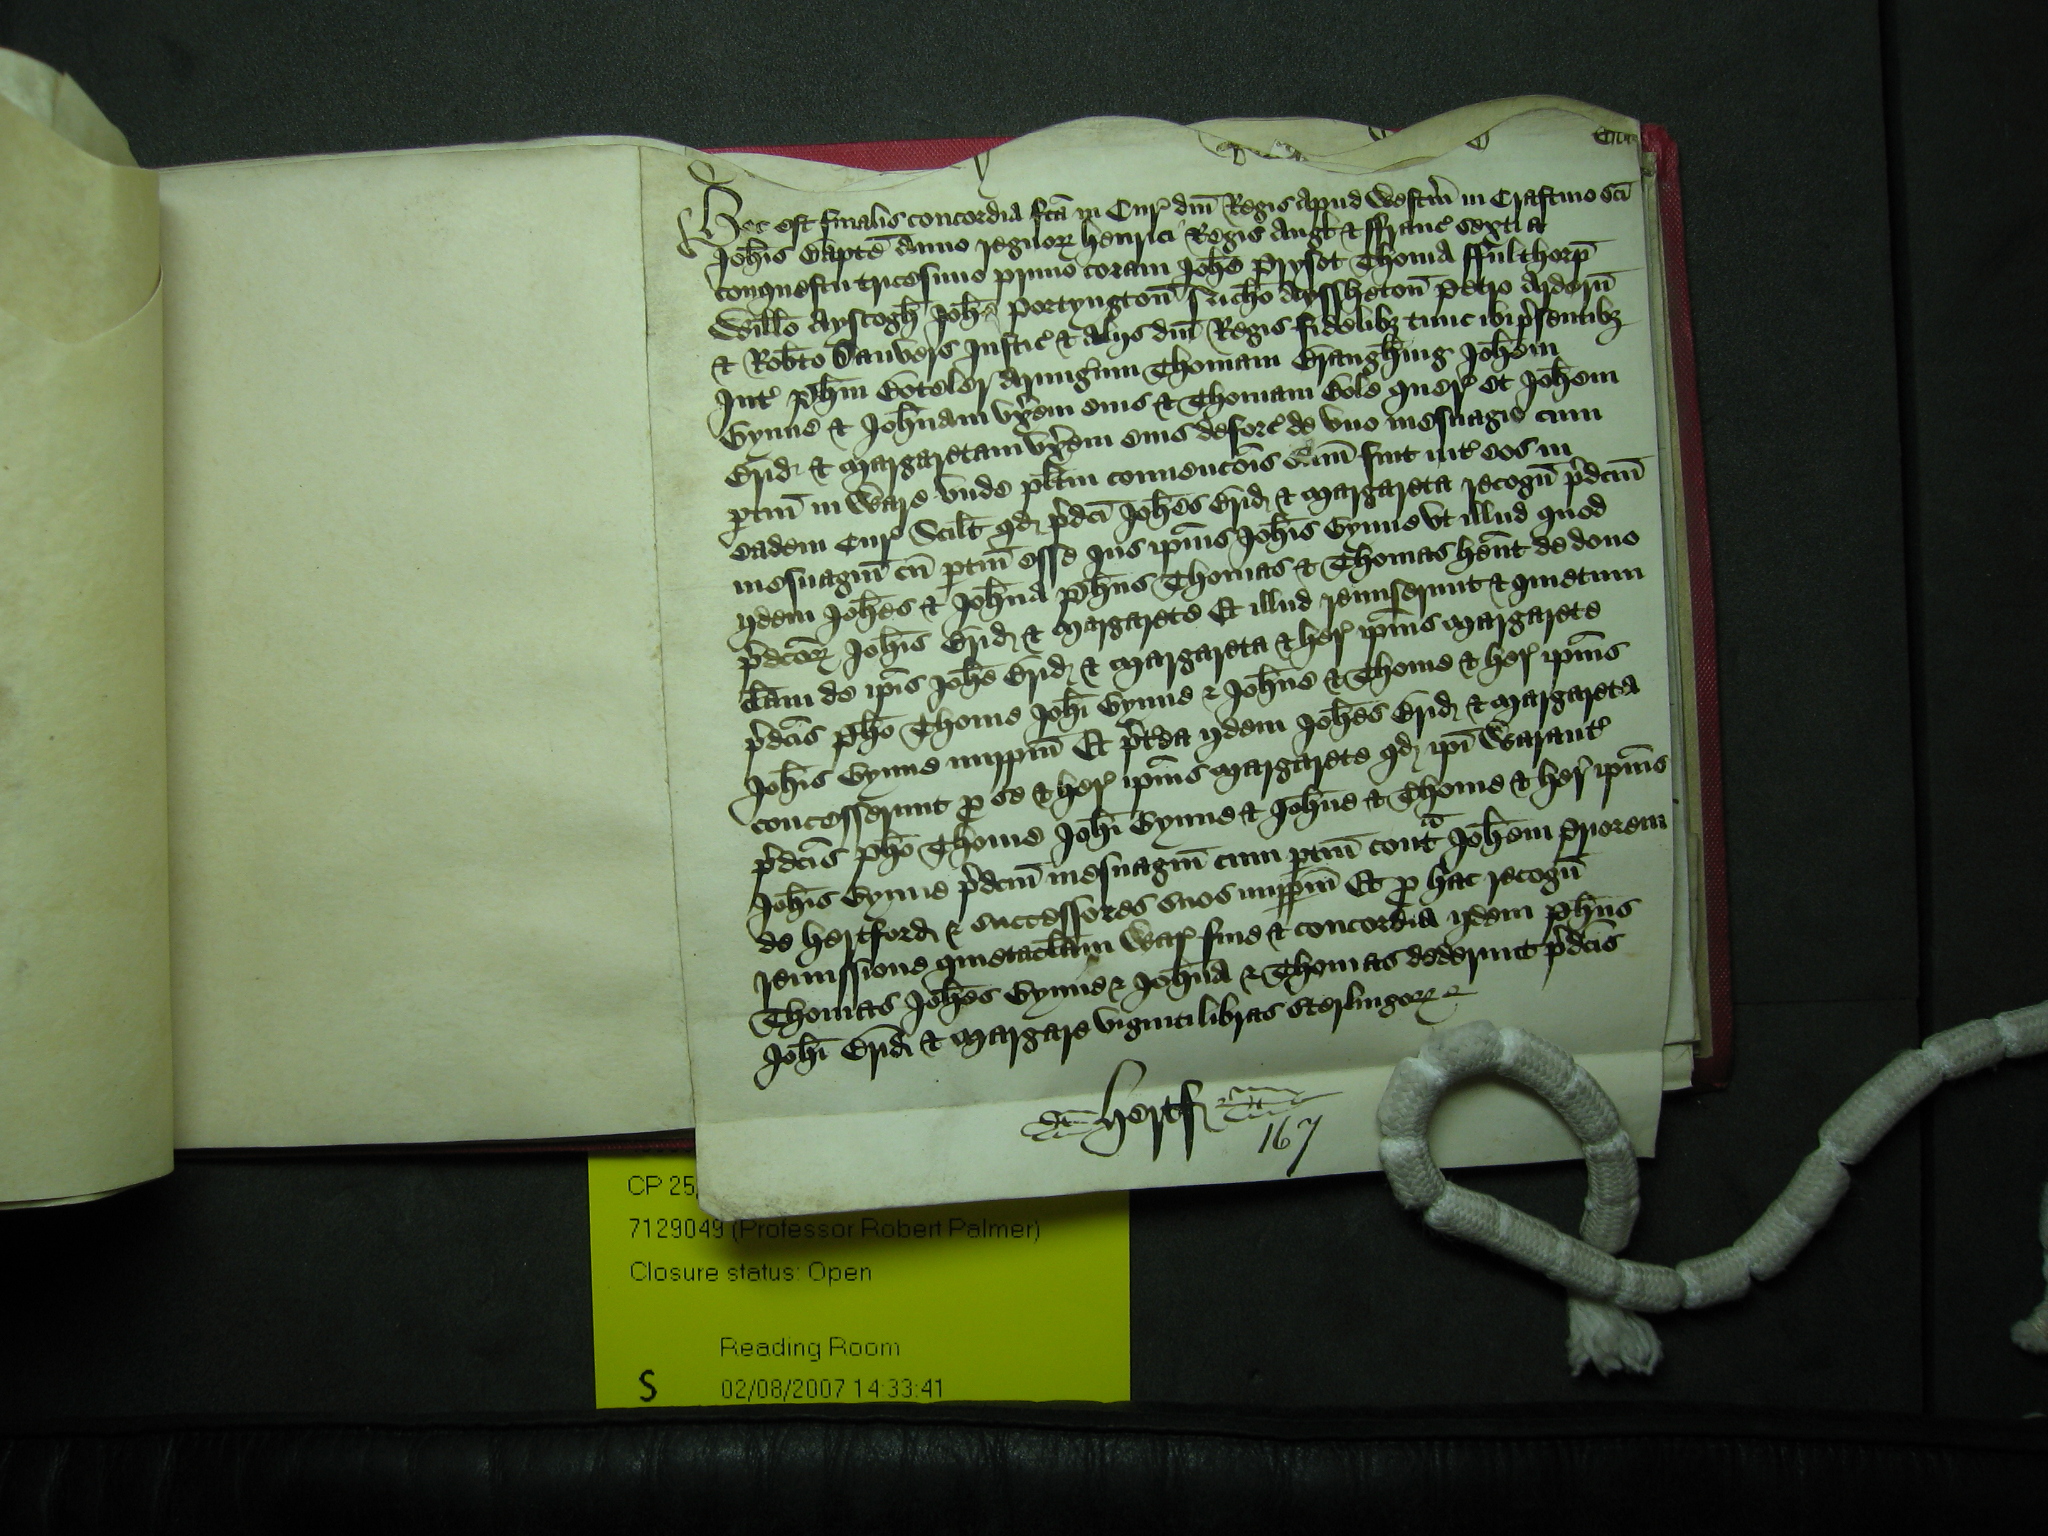 Hec est finalis concordia fcā in Cur dnī Regis apud Westm̄ in Crastino scī
Joh̄is Bapte Anno regnor Henrici Regis Angł & ffranc̄ sexti a
conquestu tricesimo primo coram Joh̄e Prysot Thoma ffulthorp
Will̄o Ayscogh Joh̄e Portyngton Nich̄o Ayssheton Petro Ardern̄
& Rob̄to Danvers Justic̄ & alijs dnī Regis fidelibȝ tunc ibi p̄sentibȝ
Int̄ Ph̄m Boteler Armigum Thomam Braughing Joh̄em
Gynne & Joh̄nam vx̄em eius & Thomam Bole quer̄ et Joh̄em
Brid & Margaretam vx̄em eius deforc̄ de vno mesuagio cum
ptin̄ in Ware vnde plītm conuenc̄ois sum̄ fuit int̄ eos in
eadem Cur̄ Scilt qd p̄dcī Joh̄es Brid & Margareta recogn̄ p̄dcm̄
mesuagiū cū ptin̄ esse Jus ipīus Joh̄is Gynne vt illud quod
ijdem Joh̄es & Joh̄na Ph̄us Thomas & Thomas hent̄ de dono
p̄dcor Joh̄is Brid & Margarete Et illud remiserunt & quietum
clām de ip̄is Joh̄e Brid & Margareta & her̄ ipīus Margarete
p̄dcīs Ph̄o Thome Joh̄i Gynne & Joh̄ne & Thome & her̄ ipīus
Joh̄is Gynne imppm̄ Et p̄tea ijdem Joh̄es Brid & Margareta
concesserunt p se & her̄ ipīus Margarete qd ipī Warant̄
p̄dcīs Ph̄o Thome Joh̄i Gynne & Joh̄ne & Thome & her̄ ipīus
Joh̄is Gynne p̄dcm̄ mesuagiū cum ptin̄ contᵃ Joh̄em Priorem
de Hertford & successores suos imppm̄ Et p hac recogn̄
remissione quietaclām War̄ fine & concordia ijdem Ph̄us
Thomas Joh̄es Gynne & Joh̄na & Thomas dederunt p̄dcīs
Joh̄i Brid & Margare viginti libras sterlingor
Hertf
167
CP 25
7129049 (Professor Robert Palmer)
Closure status: Open
Reading Room
S 02/08/2007 14:33:41